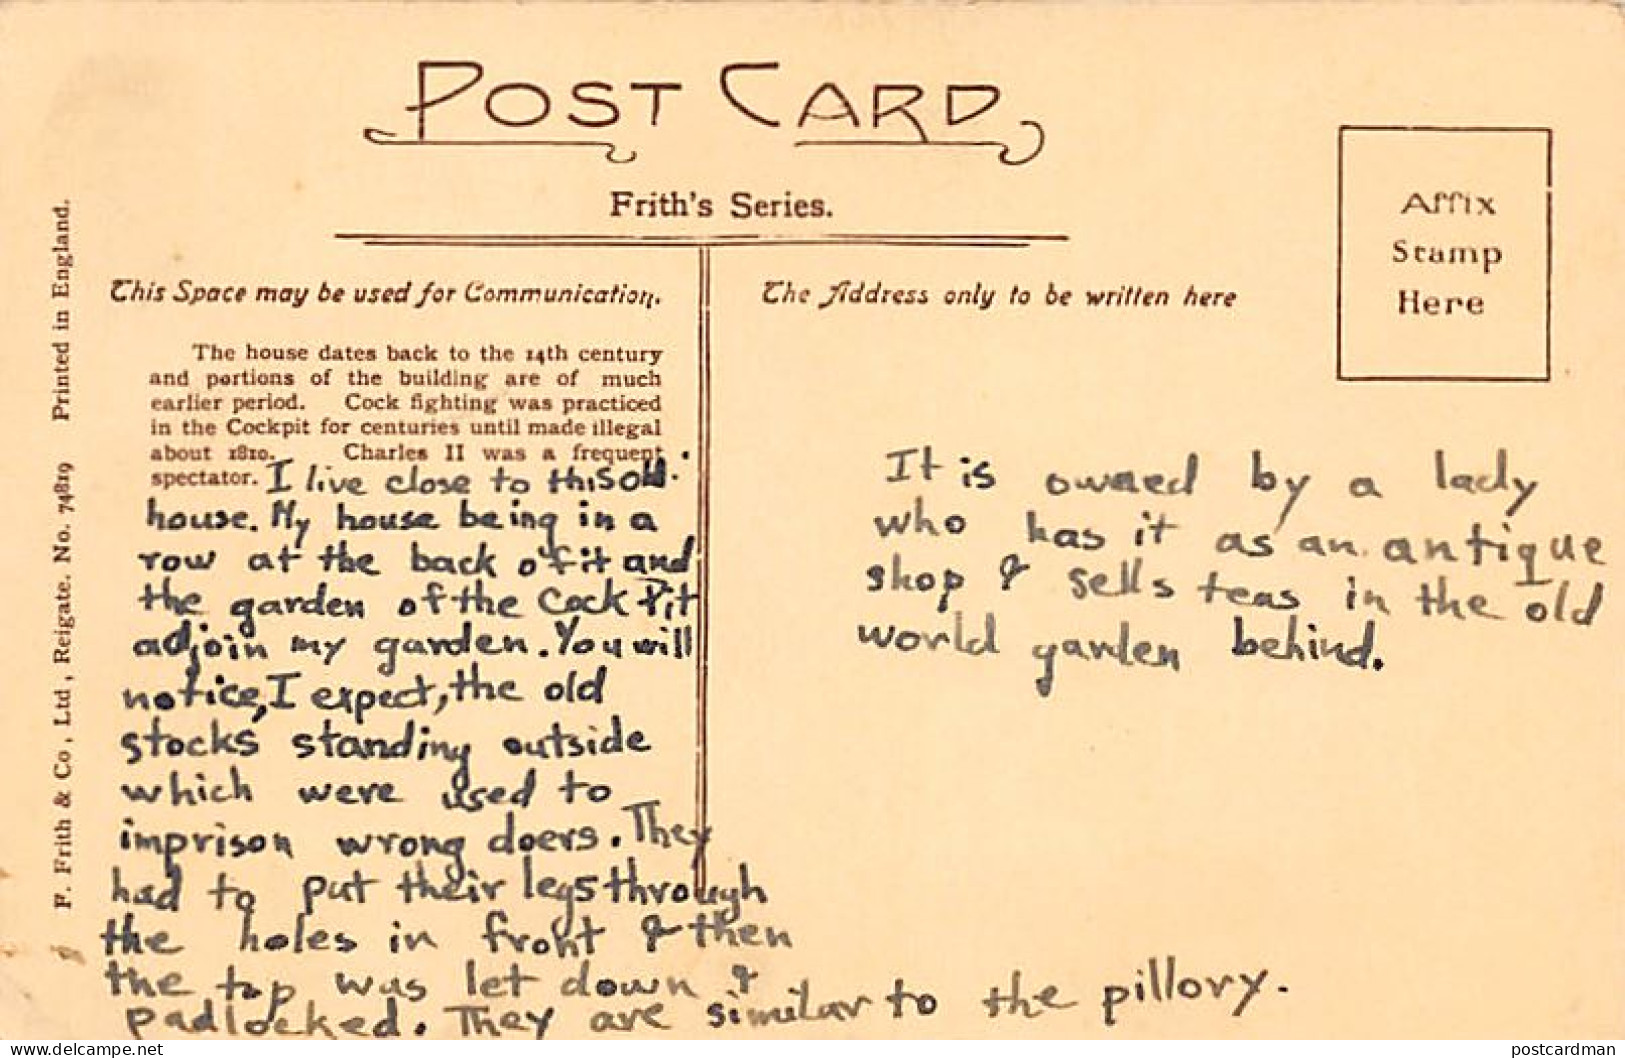 POST CARD
Frith's Series.
Affix
Stamp
Here
This Space may be used for Communication.
The Address only to be written here
The house dates back to the 14th century
and portions of the building are of much
earlier period. Cock fighting was practiced
in the Cockpit for centuries until made illegal
about 1810. Charles II was a frequent
spectator.
I live close to this old
house. My house being in a
row at the back of it and
the garden of the Cock Pit
adjoin my garden. You will
notice, I expect, the old
stocks standing outside
which were used to
imprison wrong doers. They
had to put their legs through
the holes in front & then
the top was let down &
padlocked. They are similar to the pillory.
It is owned by a lady
who has it as an antique
shop & sells teas in the old
world garden behind.
F. Frith & Co, Ltd, Reigate. No. 74819 Printed in England.
Delcampe.net
postcardman